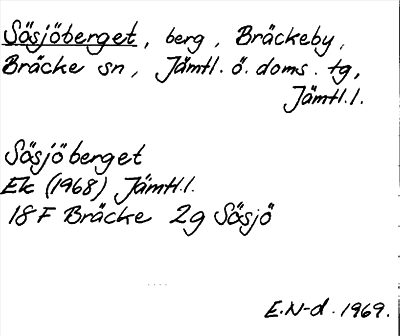 Sösjöberget, berg, Bräckeby,
Bräcke sn, Jämtl. ö. doms. tg,
Jämtl.l.
Sösjöberget
Ek (1968) Jämtl.l.
18 F Bräcke 2g Sösjö
E.N-d. 1969.